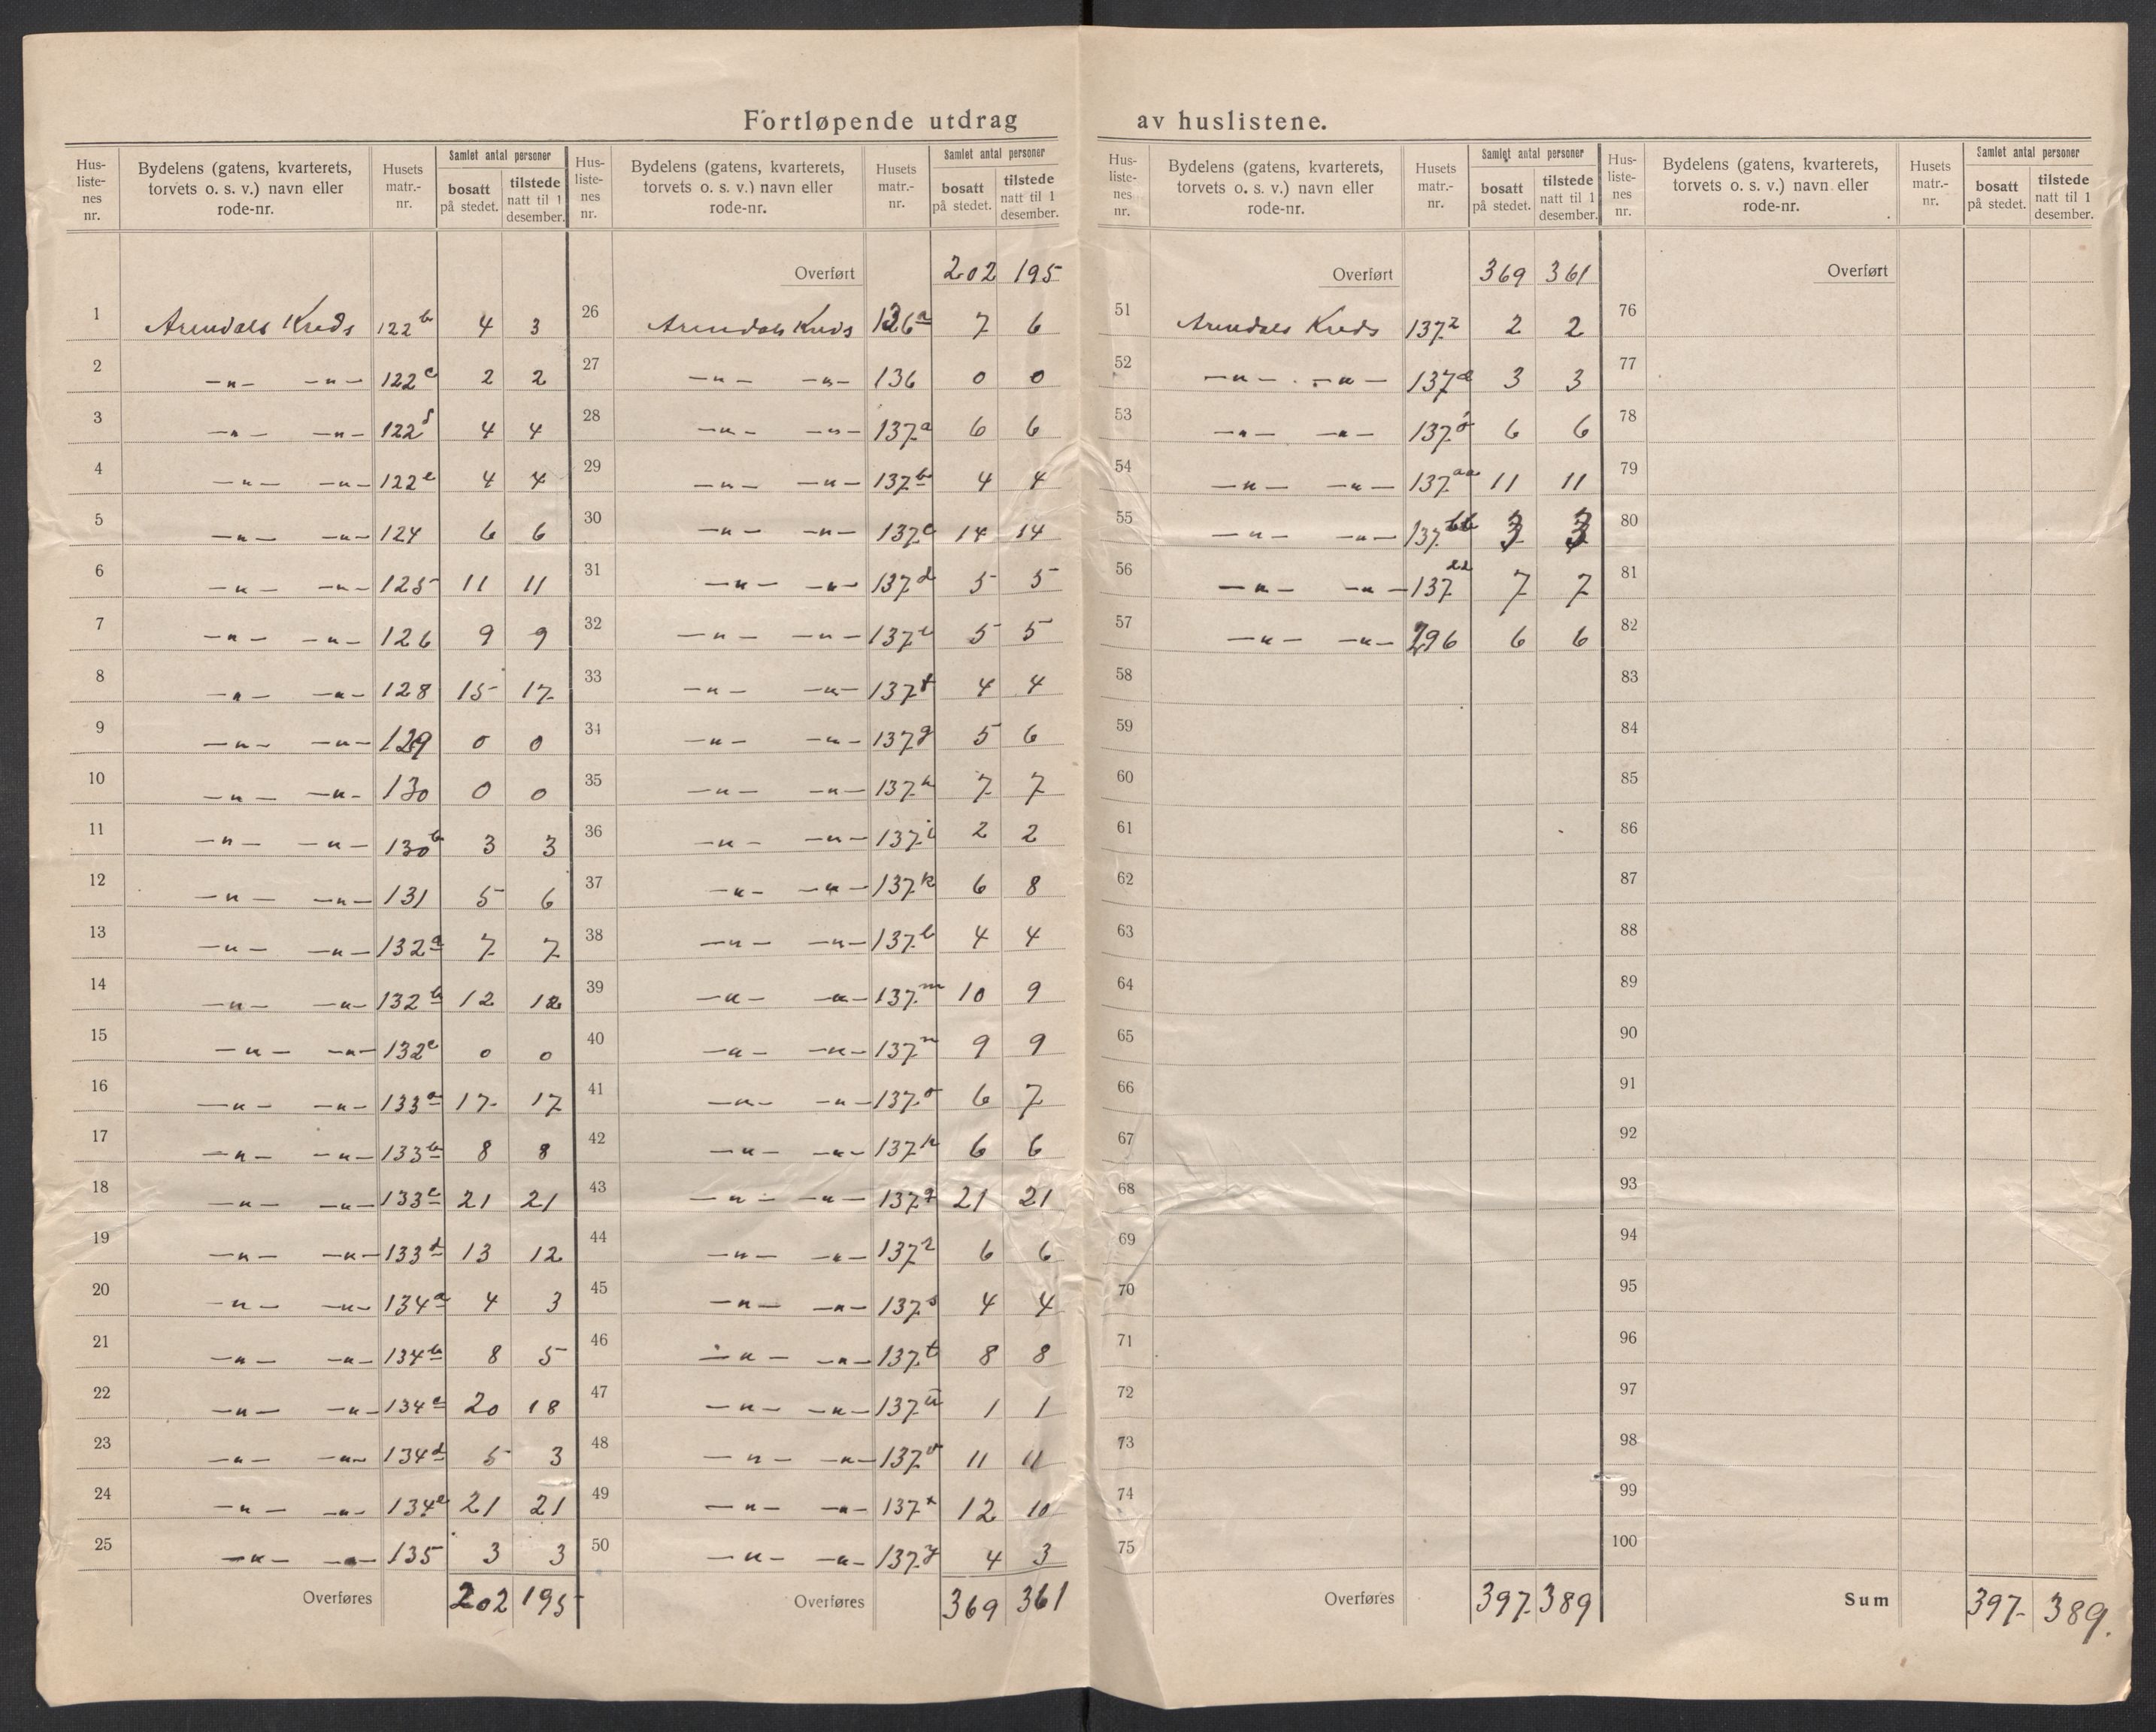 Fortløpende utdrag av huslistene.
Hus-listenes nr. | Bydelens (gatens, kvarterets, torvets o. s. v.) navn eller rode-nr. | Husets matr.-nr. | Samlet antal personer bosatt på stedet. | tilstede natt til 1 desember.
1 Arendals Kreds 122b 4 3
2 —„— —„— 122c 2 2
3 —„— —„— 122d 4 4
4 —„— —„— 122e 4 4
5 —„— —„— 124 6 6
6 —„— —„— 125 11 11
7 —„— —„— 126 9 9
8 —„— —„— 128 15 17
9 —„— —„— 129 0 0
10 —„— —„— 130 0 0
11 —„— —„— 130b 3 3
12 —„— —„— 131 5 6
13 —„— —„— 132a 7 7
14 —„— —„— 132b 12 12
15 —„— —„— 132c 0 0
16 —„— —„— 133a 17 17
17 —„— —„— 133b 8 8
18 —„— —„— 133c 21 21
19 —„— —„— 133d 13 12
20 —„— —„— 134a 4 3
21 —„— —„— 134b 8 5
22 —„— —„— 134c 20 18
23 —„— —„— 134d 5 3
24 —„— —„— 134e 21 21
25 —„— —„— 135 3 3
Overføres 202 195
Hus-listenes nr. | Bydelens (gatens, kvarterets, torvets o. s. v.) navn eller rode-nr. | Husets matr.-nr. | Samlet antal personer bosatt på stedet. | tilstede natt til 1 desember.
Overført 202 195
26 Arendals Kreds 136a 7 6
27 —„— —„— 136 0 0
28 —„— —„— 137a 6 6
29 —„— —„— 137b 4 4
30 —„— —„— 137c 14 14
31 —„— —„— 137d 5 5
32 —„— —„— 137e 5 5
33 —„— —„— 137f 4 4
34 —„— —„— 137g 5 6
35 —„— —„— 137h 7 7
36 —„— —„— 137i 2 2
37 —„— —„— 137k 6 8
38 —„— —„— 137l 4 4
39 —„— —„— 137m 10 9
40 —„— —„— 137n 9 9
41 —„— —„— 137o 6 7
42 —„— —„— 137p 6 6
43 —„— —„— 137q 21 21
44 —„— —„— 137r 6 6
45 —„— —„— 137s 4 4
46 —„— —„— 137t 8 8
47 —„— —„— 137u 1 1
48 —„— —„— 137v 11 11
49 —„— —„— 137x 12 10
50 —„— —„— 137y 4 3
Overføres 369 361
Hus-listenes nr. | Bydelens (gatens, kvarterets, torvets o. s. v.) navn eller rode-nr. | Husets matr.-nr. | Samlet antal personer bosatt på stedet. | tilstede natt til 1 desember.
Overført 369 361
51 Arendals Kreds 137z 2 2
52 —„— —„— 137æ 3 3
53 —„— —„— 137ø 6 6
54 —„— —„— 137aa 11 11
55 —„— —„— 137bb 3 3
56 —„— —„— 137 7 7
57 —„— —„— 296 6 6
58
59
60
61
62
63
64
65
66
67
68
69
70
71
72
73
74
75
Overføres 397 389
Hus-listenes nr. | Bydelens (gatens, kvarterets, torvets o. s. v.) navn eller rode-nr. | Husets matr.-nr. | Samlet antal personer bosatt på stedet. | tilstede natt til 1 desember.
Overført
76
77
78
79
80
81
82
83
84
85
86
87
88
89
90
91
92
93
94
95
96
97
98
99
100
Sum 397 389.